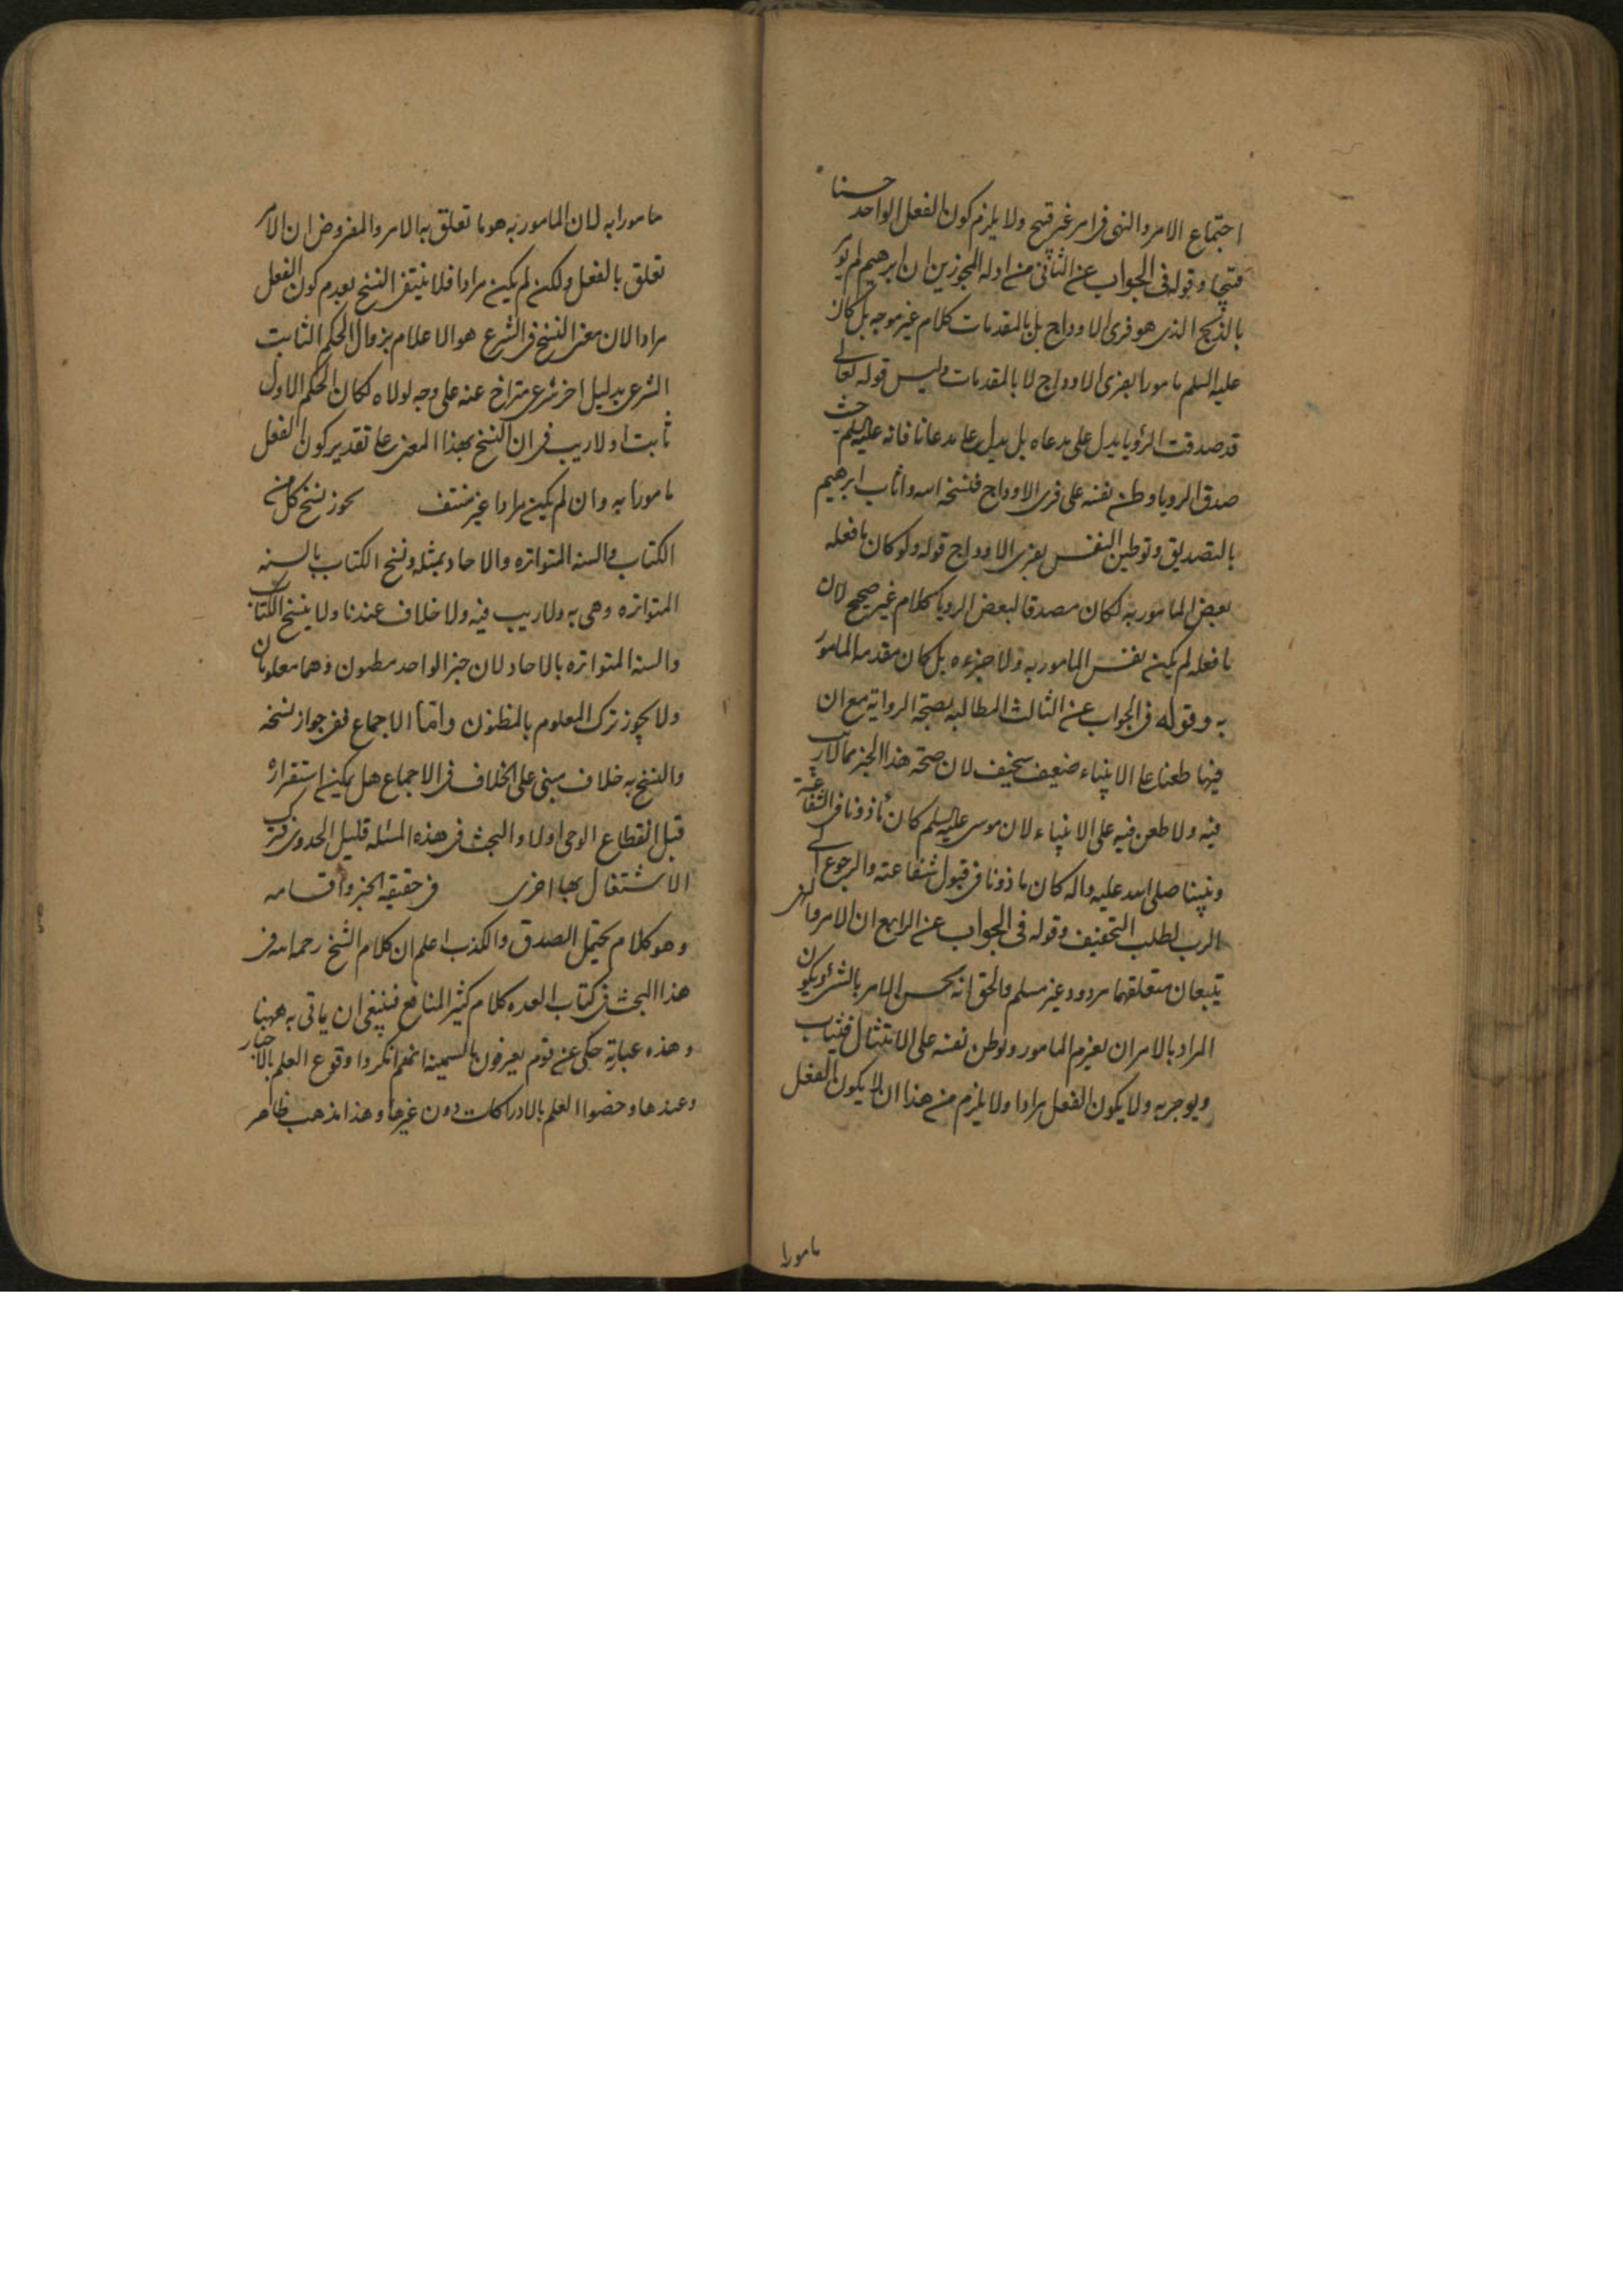 اجتماع الامر والنهى فى امر غير قبيح ولا يلزم كون الفعل الواحد حسنا
قبيحا وقوله فى الجواب عن الثانى من ادله المجوزين ان ابرهيم لم يؤمر
بالذبح الذى هو فرى الاوداج بل بالمقدمات كلام غير موجه بل كان
عليه السلم مامورا بفرى الاوداج لا بالمقدمات وليس قوله تعالى
قد صدقت الرؤيا يدل على مدعاه بل يدل على مدعانا فانه عليه السلم حيث
صدق الرويا وطن نفسه على فرى الاوداج فنسخه الله واثاب ابرهيم
بالتصديق وتوطين النفس بفرى الاوداج قوله ولو كان ما فعله
بعض المامور به لكان مصدقا لبعض الرويا كلام غير صحيح لان
ما فعله لم يكن نفس المامور به ولا جزءه بل كان مقدمه المامور
به وقوله فى الجواب عن الثالث المطالبه بصحة الرواية مع ان
فيها طعنا على الانبياء ضعيف سخيف لان صحة هذا الخبر مما لا ريب
فيه ولا طعن فيه على الانبياء لان موسى عليه السلم كان مأذونا فى الشفاعة
ونبينا صلى الله عليه واله كان ماذونا فى قبول شفاعته والرجوع الى
الرب لطلب التخفيف وقوله فى الجواب عن الرابع ان الامر والنهى
يتبعان متعلقهما مردود غير مسلم والحق انه يحسن الامر بالشئ ويكون
المراد بالامر ان يعزم المامور ويوطن نفسه على الامتثال فيثاب
ويوجر به ولا يكون الفعل مرادا ولا يلزم من هذا ان لا يكون الفعل
مامورا
مامورا به لان المامور به هو ما تعلق به الامر والمفروض ان الامر
تعلق بالفعل ولكن لم يكن مرادا فلا ينتفى النسخ بعدم كون الفعل
مرادا لان معنى النسخ فى الشرع هو الاعلام بزوال الحكم الثابت
الشرعى بدليل اخر شرعى متراخ عنه على وجه لولاه لكان الحكم الاول
ثابتا ولا ريب فى ان النسخ بهذا المعنى على تقدير كون الفعل
مامورا به وان لم يكن مرادا غير منتف يجوز نسخ كل من
الكتاب والسنه المتواتره والاحاد بمثله ونسخ الكتاب بالسنه
المتواتره وهى به ولا ريب فيه ولا خلاف عندنا ولا ينسخ الكتاب
والسنه المتواتره بالاحاد لان خبر الواحد مظنون وهما معلومان
ولا يجوز ترك المعلوم بالمظنون واما الاجماع ففى جواز نسخه
والنسخ به خلاف مبنى على الخلاف فى الاجماع هل يمكن استقراره
قبل انقطاع الوحى اولا والبحث فى هذه المسئله قليل الجدوى فترك
الاشتغال بها احرى فى حقيقه الخبر واقسامه
وهو كلام يحتمل الصدق والكذب اعلم ان كلام الشيخ رحمه الله فى
هذا البحث فى كتاب العده كلام كثير المنافع فينبغى ان ياتى به ههنا
وهذه عبارته حكى عن قوم يعرفون بالسمينه انهم انكروا وقوع العلم بالاخبار
وعندها وخصوا العلم بالادراكات دون غيرها وهذا مذهب ظاهر